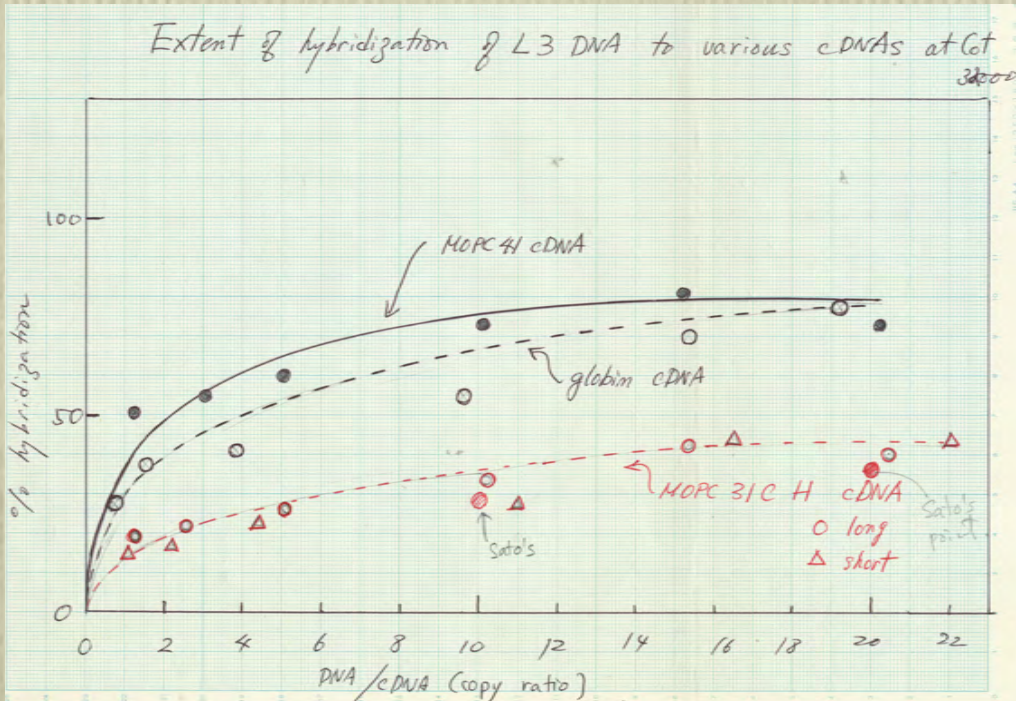 Extent of hybridization of L3 DNA to various cDNAs at Cot
100
50
0
% hybridization
MOPC 41 cDNA
globin cDNA
MOPC 31C H cDNA
long
short
Sato's
Sato's
point
0 2 4 6 8 10 12 14 16 18 20 22
DNA/cDNA (copy ratio)